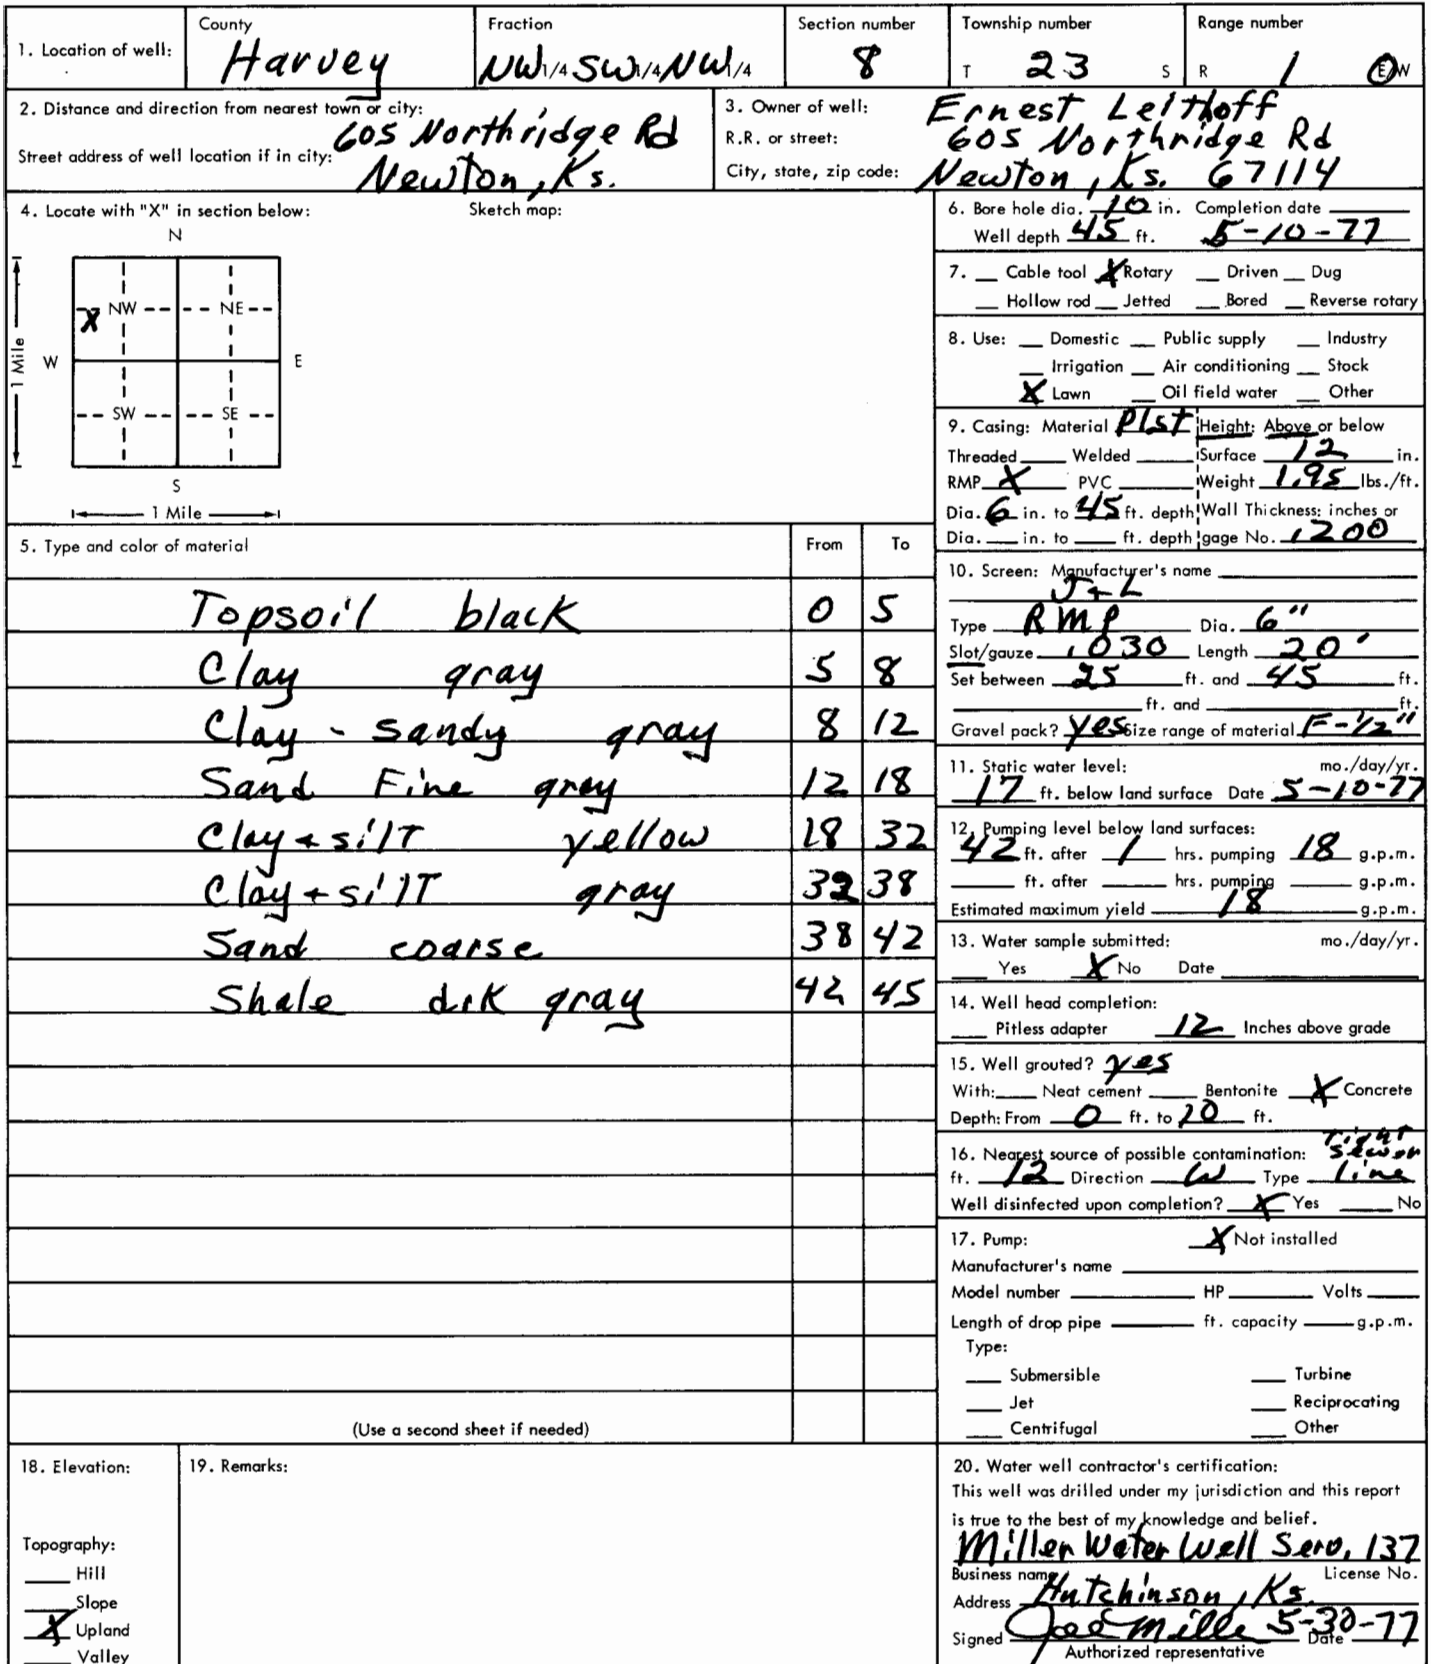 1. Location of well: County Harvey Fraction NW 1/4 SW 1/4 NW 1/4 Section number 8 Township number T 23 S Range number R 1 E/W
2. Distance and direction from nearest town or city:
Street address of well location if in city: 605 Northridge Rd
Newton, Ks.
3. Owner of well: Ernest Leithoff
R.R. or street: 605 Northridge Rd
City, state, zip code: Newton, Ks. 67114
4. Locate with "X" in section below: Sketch map:
N
NW NE
X
W E
1 Mile
SW SE
S
1 Mile
5. Type and color of material From To
Topsoil black 0 5
Clay gray 5 8
Clay - sandy gray 8 12
Sand Fine gray 12 18
Clay + silt yellow 18 32
Clay + silt gray 32 38
Sand coarse 38 42
Shale drk gray 42 45
(Use a second sheet if needed)
6. Bore hole dia. 10 in. Completion date
Well depth 45 ft. 5-10-77
7. Cable tool X Rotary Driven Dug
Hollow rod Jetted Bored Reverse rotary
8. Use: Domestic Public supply Industry
Irrigation Air conditioning Stock
X Lawn Oil field water Other
9. Casing: Material Plst Height: Above or below
Threaded Welded Surface 12 in.
RMP X PVC Weight 1.95 lbs./ft.
Dia. 6 in. to 45 ft. depth Wall Thickness: inches or
Dia. in. to ft. depth gage No. .200
10. Screen: Manufacturer's name
J+L
Type RMP Dia. 6"
Slot/gauze .030 Length 20'
Set between 25 ft. and 45 ft.
ft. and ft.
Gravel pack? yes Size range of material F-1/2"
11. Static water level: mo./day/yr.
17 ft. below land surface Date 5-10-77
12. Pumping level below land surfaces:
42 ft. after 1 hrs. pumping 18 g.p.m.
ft. after hrs. pumping g.p.m.
Estimated maximum yield 18 g.p.m.
13. Water sample submitted: mo./day/yr.
Yes X No Date
14. Well head completion:
Pitless adapter 12 Inches above grade
15. Well grouted? yes
With: Neat cement Bentonite X Concrete
Depth: From 0 ft. to 20 ft.
16. Nearest source of possible contamination: tight sewer
ft. 12 Direction W Type line
Well disinfected upon completion? X Yes No
17. Pump: X Not installed
Manufacturer's name
Model number HP Volts
Length of drop pipe ft. capacity g.p.m.
Type:
Submersible Turbine
Jet Reciprocating
Centrifugal Other
18. Elevation:
Topography:
Hill
Slope
X Upland
Valley
19. Remarks:
20. Water well contractor's certification:
This well was drilled under my jurisdiction and this report
is true to the best of my knowledge and belief.
Miller Water Well Serv. 137
Business name License No.
Address Hutchinson, Ks.
Signed Joe Miller 5-30-77 Date
Authorized representative